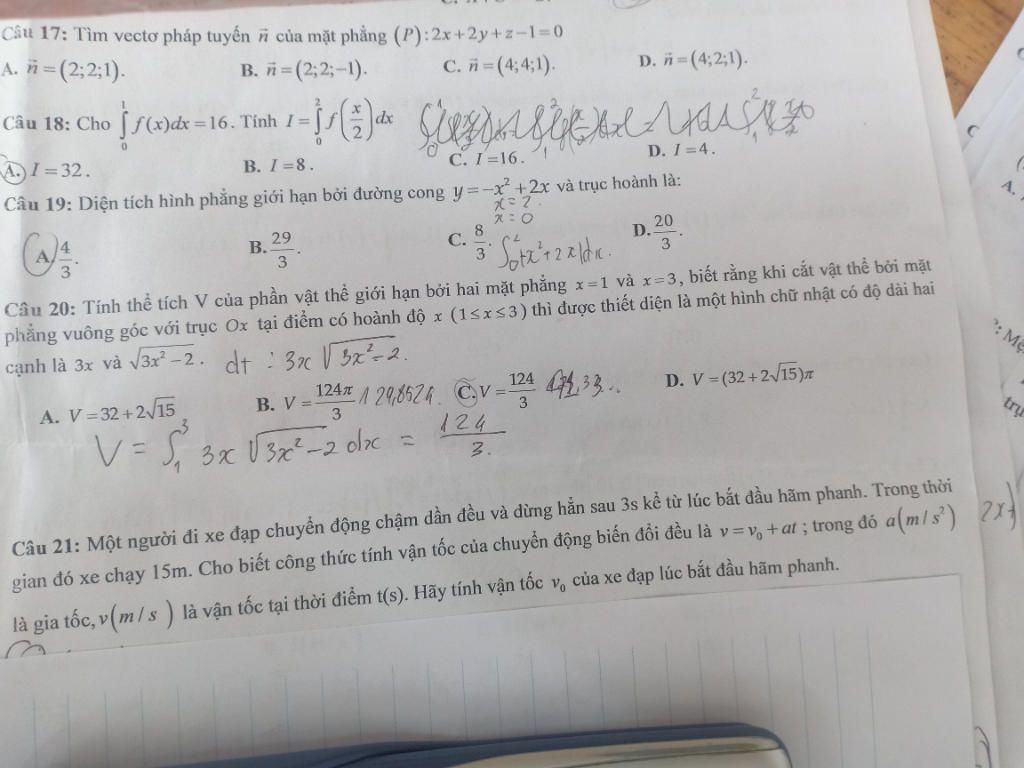 Câu 17: Tìm vectơ pháp tuyến n⃗ của mặt phẳng (P): 2x + 2y + z − 1 = 0
A. n⃗ = (2;2;1). B. n⃗ = (2;2;−1). C. n⃗ = (4;4;1). D. n⃗ = (4;2;1).
Câu 18: Cho ∫₀¹ f(x)dx = 16. Tính I = ∫₀² f(x/2)dx
A. I = 32. B. I = 8. C. I = 16. D. I = 4.
Câu 19: Diện tích hình phẳng giới hạn bởi đường cong y = −x² + 2x và trục hoành là:
x = 2
x = 0
A. 4/3. B. 29/3. C. 8/3. D. 20/3.
Câu 20: Tính thể tích V của phần vật thể giới hạn bởi hai mặt phẳng x = 1 và x = 3, biết rằng khi cắt vật thể bởi mặt
phẳng vuông góc với trục Ox tại điểm có hoành độ x (1 ≤ x ≤ 3) thì được thiết diện là một hình chữ nhật có độ dài hai
cạnh là 3x và √(3x² − 2). dt : 3x √(3x² − 2).
A. V = 32 + 2√15 B. V = 124π/3 C. V = 124/3 D. V = (32 + 2√15)π
V = ∫₁³ 3x √(3x² − 2) dx = 124/3.
Câu 21: Một người đi xe đạp chuyển động chậm dần đều và dừng hẳn sau 3s kể từ lúc bắt đầu hãm phanh. Trong thời
gian đó xe chạy 15m. Cho biết công thức tính vận tốc của chuyển động biến đổi đều là v = v₀ + at ; trong đó a(m/s²)
là gia tốc, v(m/s) là vận tốc tại thời điểm t(s). Hãy tính vận tốc v₀ của xe đạp lúc bắt đầu hãm phanh.